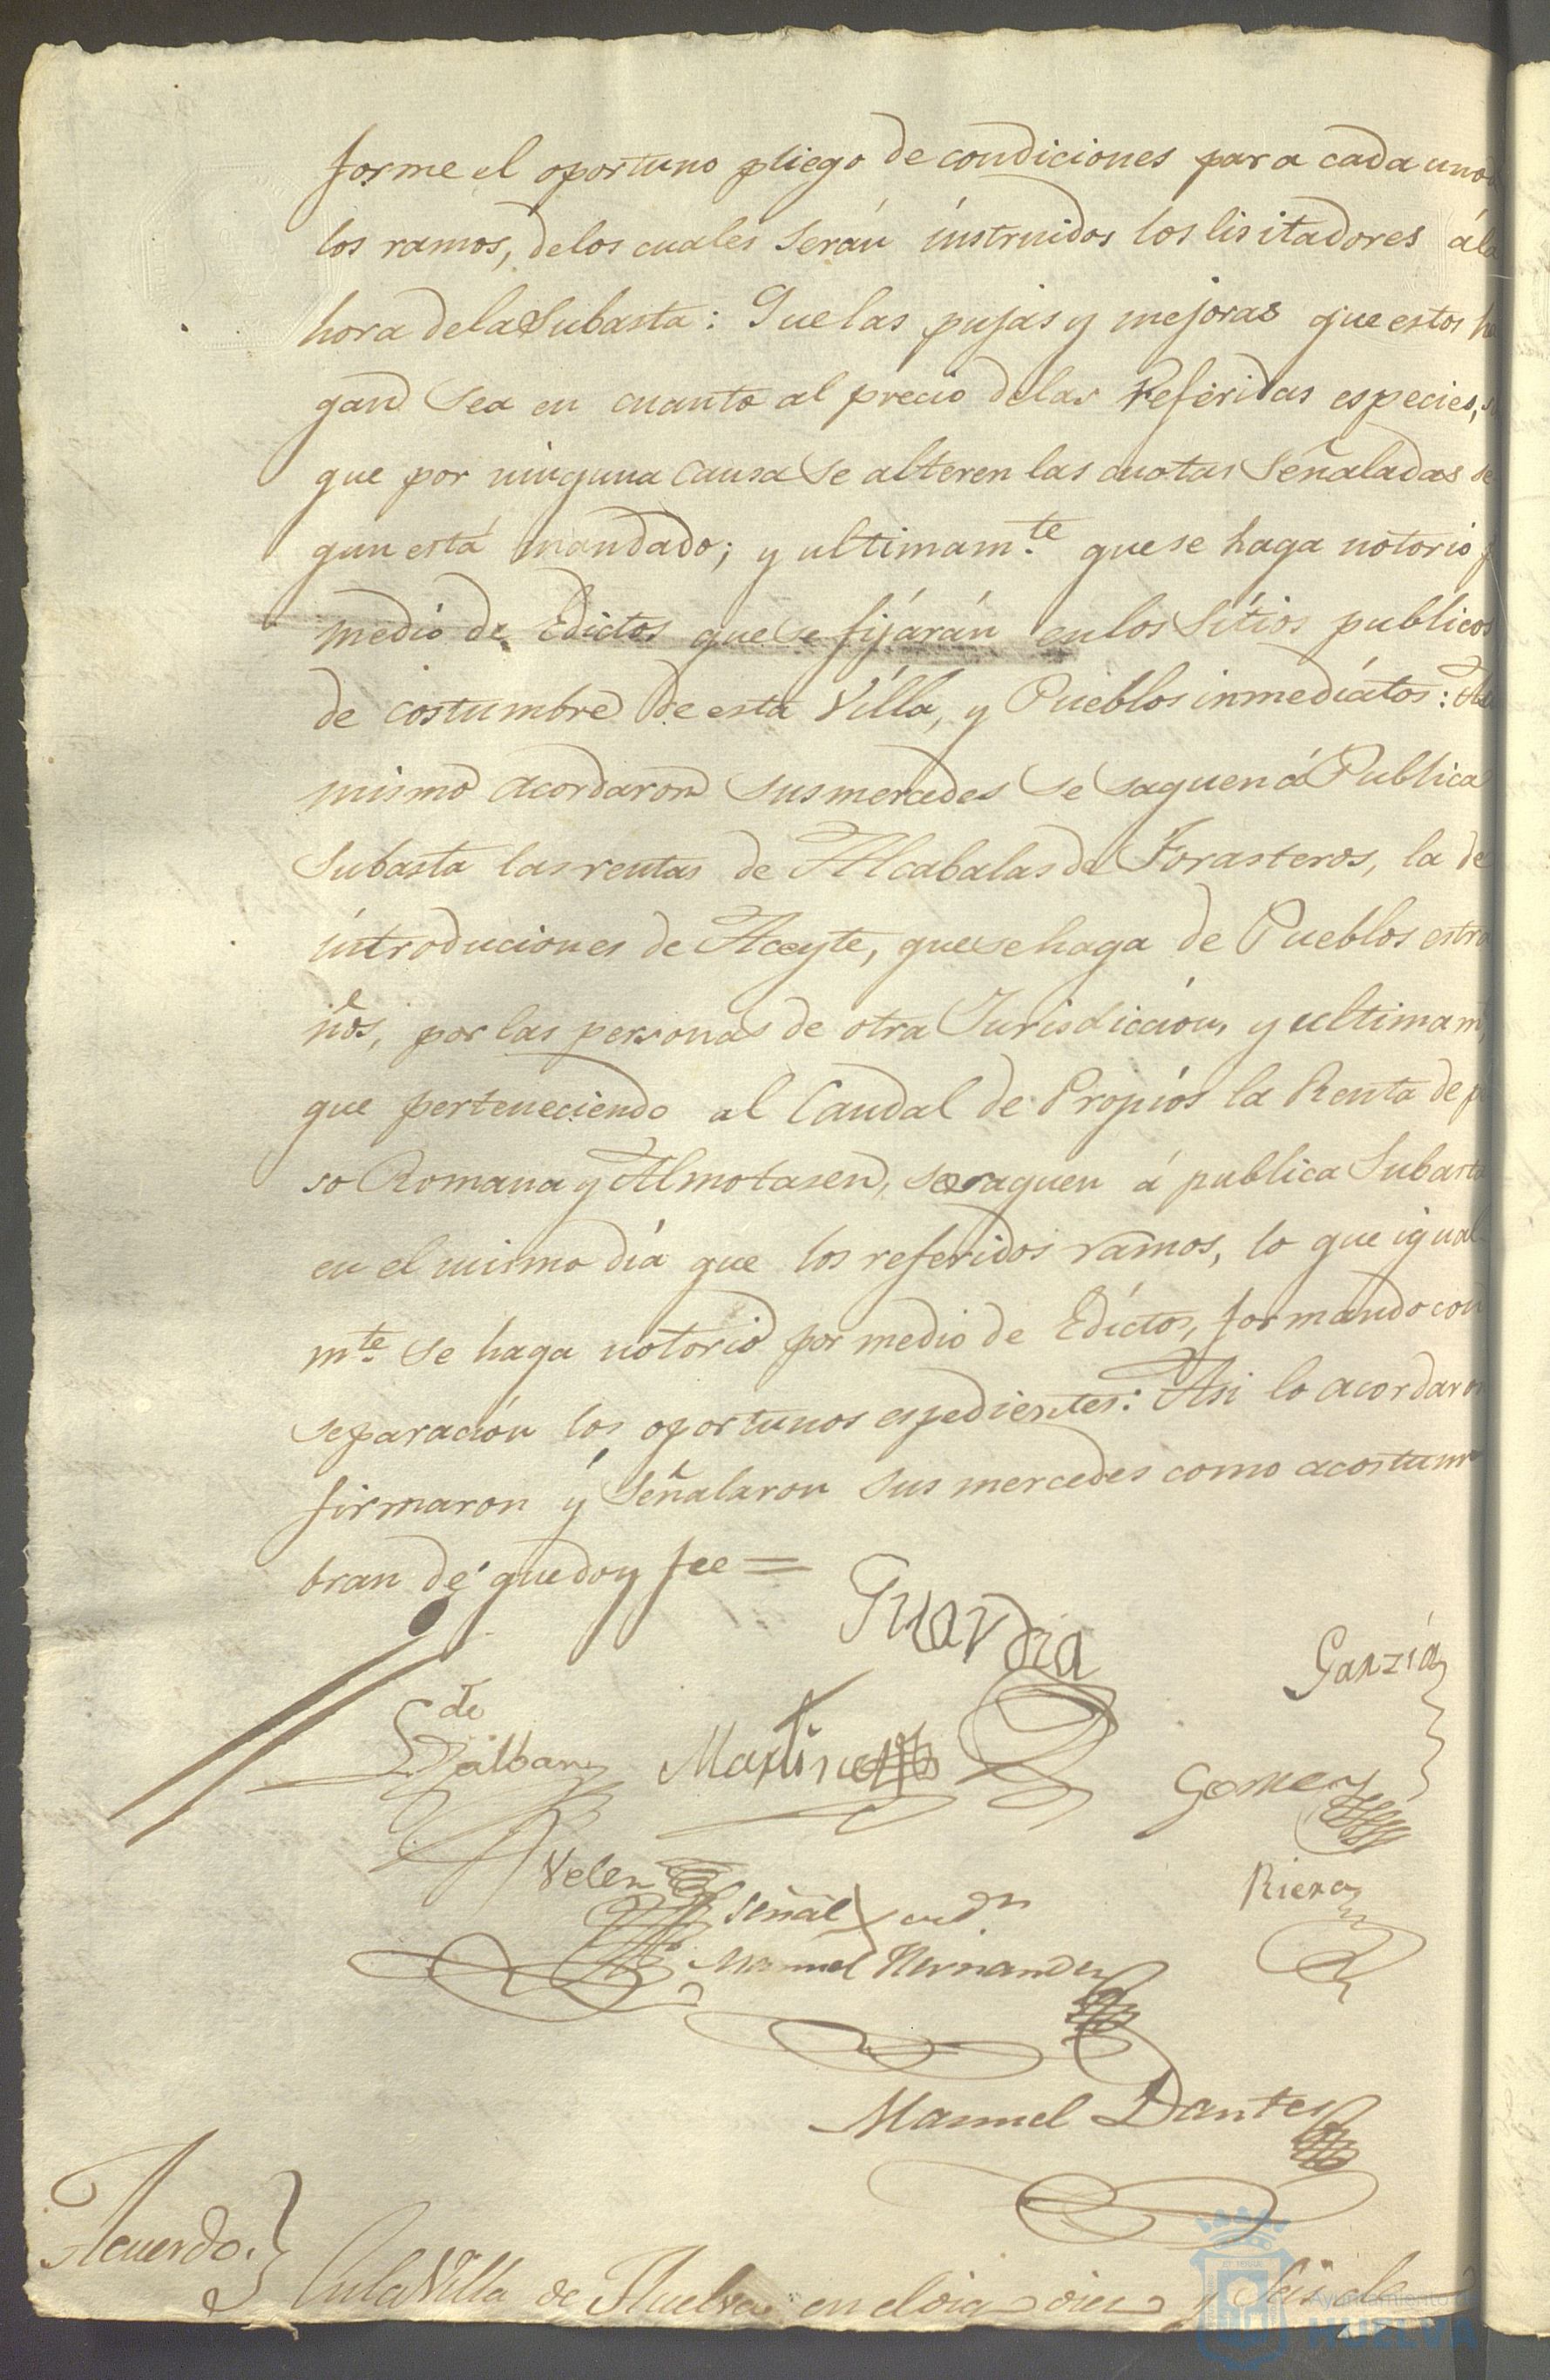 forme el oportuno pliego de condiciones para cada uno d
los ramos, delos cuales serán instruidos los lisitadores ála
hora dela Subasta: Que las pujas y mejoras que estos ha
gan sea en cuanto al precio delas Referidas especies, s
que por ninguna causa se alteren las cuotas Señaladas se
gun está mandado; y ultimam.te que se haga notorio p
medio de Edictos que se fijárán en los Sitios publicos
de costumbre de esta Villa, y Pueblos inmediatos:
mismo acordaron sus mercedes se saquen á Publica
Subasta las rentas de Alcabalas de Forasteros, la de
introduciones de Aceyte, que se haga de Pueblos estra
ños, por las personas de otra Jurisdiccion, y ultimam
que perteneciendo al Caudal de Propios la Renta de pe
so Romana y Almotasen, se saquen á publica Subasta
en el mismo dia que los referidos ramos, lo que igual
mte. se haga notorio por medio de Edictos, formando con
separacion los oportunos espedientes: Asi lo acordaron
firmaron y Señalaron sus mercedes como acostum
bran dé que doy fee =
Guardia
Garzia
de
Martinez
Gomez
Velez
Riera
Señal
Manuel Hernandez
Manuel Dantes
Acuerdo.
En la Villa de Huelva en el dia diez y Seis de
Ayuntamiento de
HUELVA